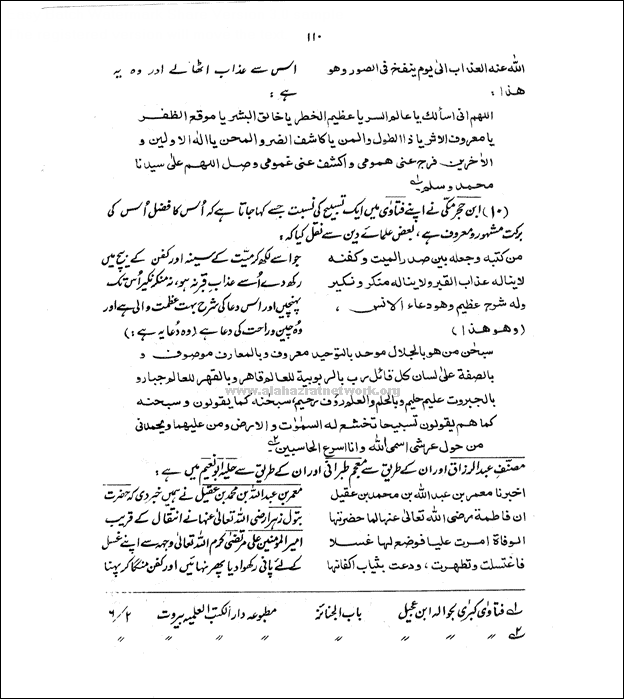 ۱۱۰
الله عنه العذاب الى يوم ينفخ فى الصور وهو
هذا:
اس سے عذاب اٹھالے اور وہ یہ
ہے:
اللهم انى اسألك يا عالم السر يا عظيم الخطر يا خالق البشر يا موقع الظفر
يا معروف الاثر يا ذا الطول والمن يا كاشف الضر والمحن يا اله الاولين و
الاٰخرين فرج عنى همومى واكشف عنى غمومى وصل اللهم على سيدنا
محمد وسلم۔
(۱۰) ابن حجر مکی نے اپنے فتاوٰی میں ایک تسبیح کی نسبت جسے کہا جاتا ہے کہ اُس کا فضل اُس کی
برکت مشہور و معروف ہے، بعض علمائے دین سے نقل کیا کہ:
من كتبه وجعله بين صدر الميت وكفنه
لا يناله عذاب القبر ولا يناله منكر ونكير
وله شرح عظيم وهو دعاء الانس،
(وهو هذا)
جو اسے لکھ کر میّت کے سینہ اور کفن کے بیچ میں
رکھ دے اُسے عذابِ قبر نہ ہو، نہ منکر نکیر اُس تک
پہنچیں اور اس دعا کی شرح بہت عظمت والی ہے اور
وہ چین و راحت کی دعا ہے (وہ دُعا یہ ہے:)
سبحٰن من هو بالجلال موحد بالتوحيد معروف وبالمعارف موصوف و
بالصفة على لسان كل قائل رب بالربوبية للعالم قاهر وبالقهر للعالم جبار و
بالجبروت عليم حليم وبالحلم والعلم رؤف رحيم سبحنه كما يقولون و سبحنه
كما هم يقولون تسبيحا تخشع له السمٰوٰت و الارض ومن عليهما ويحمدنى
من حول عرشى اسمى الله وانا اسرع الحاسبين۔
www.alahazratnetwork.org
مصنّف عبد الرزاق اور ان کے طریق سے معجم طبرانی اور ان کے طریق سے حلیہ ابو نعیم میں ہے:
اخبرنا معمر بن عبد الله بن محمد بن عقيل
ان فاطمة رضى الله تعالٰى عنها لما حضرتها
الوفاة امرت عليا فوضع لها غسلا
فاغتسلت وتطهرت، ودعت بثياب اكفانها
معمر بن عبد اللہ بن محمد بن عقیل نے ہمیں خبر دی کہ حضرت
بتول زہرا رضی اللہ تعالٰی عنہا نے انتقال کے قریب
امیر المومنین علی مرتضٰی کرم اللہ تعالٰی وجہہ سے اپنے غسل
کے لئے پانی رکھوا دیا پھر نہائیں اور کفن منگا کر پہنا
۱؎ فتاوٰی کبرٰی بحوالہ ابن عجیل باب الجنائز مطبوعہ دار الکتب العلمیہ بیروت ۲/۶
۲؎ ״ ״ ״ ״ ״ ״ ״